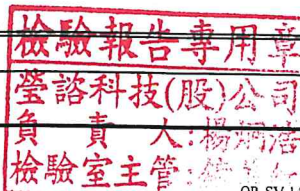 檢驗報告專用章
瑩諮科技(股)公司
負責人:楊
檢驗室主管: